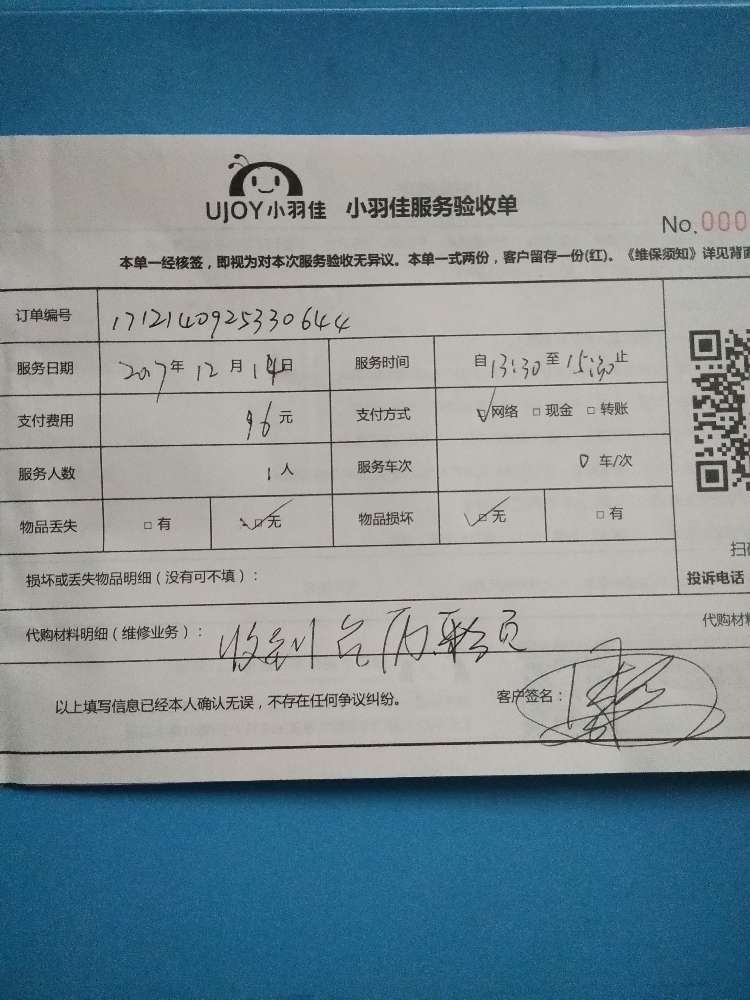 UJOY小羽佳 小羽佳服务验收单
No.000
本单一经核签，即视为对本次服务验收无异议。本单一式两份，客户留存一份(红)。《维保须知》详见背面
订单编号 171214092533064４
服务日期 2017年 12 月 14日 服务时间 自13:30至15:30止
支付费用 96元 支付方式 □网络 □现金 □转账
服务人数 1人 服务车次 0 车/次
物品丢失 □有 □无 物品损坏 □无 □有
损坏或丢失物品明细（没有可不填）：
扫
投诉电话
代购材料明细（维修业务）：
代购材料
以上填写信息已经本人确认无误，不存在任何争议纠纷。 客户签名：